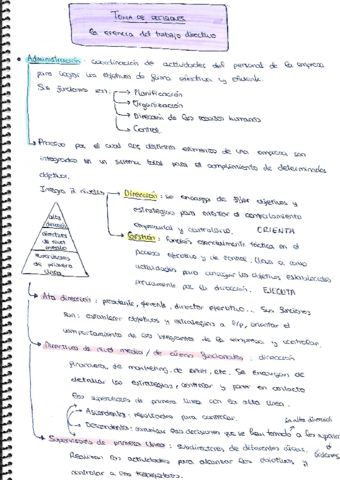 TOMA DE DECISIONES
La esencia del trabajo directivo
Administración: coordinación de actividades del personal de la empresa
para lograr los objetivos de forma efectiva y eficiente.
Sus funciones son: Planificación
Organización
Dirección de los recursos humanos
Control.
Proceso por el cual los distintos elementos de una empresa son
integrados en un sistema total para el cumplimiento de determinados
objetivos.
Integra 2 niveles
Dirección: se encarga de fijar objetivos y
estrategias para orientar el comportamiento
empresarial y controlarlo. ORIENTA
Gestión: función esencialmente táctica en el
proceso ejecutivo y de control: lleva a cabo
actividades para conseguir los objetivos establecidos
previamente por la dirección. EJECUTA
alta
dirección
directivos
de nivel
medio
supervisores
de primera
línea
Alta dirección: presidente, gerente, director ejecutivo... Sus funciones
son: establecer objetivos y estrategias a l/p, orientar el
comportamiento de los integrantes de la empresa y controlar.
Directivos de nivel medio / de áreas funcionales: dirección
financiera, de marketing, de, etc. Se encargan de
detallar las estrategias, controlar y poner en contacto
los supervisores de primera línea con la alta línea.
Ascendente: resultados para controlar.
Descendente: comunicar las decisiones que se han tomado a los
la alta dirección
Supervisores de primera línea: subdirectores de diferentes áreas.
Realizan las actividades para alcanzar los objetivos y
controlar a los trabajadores.